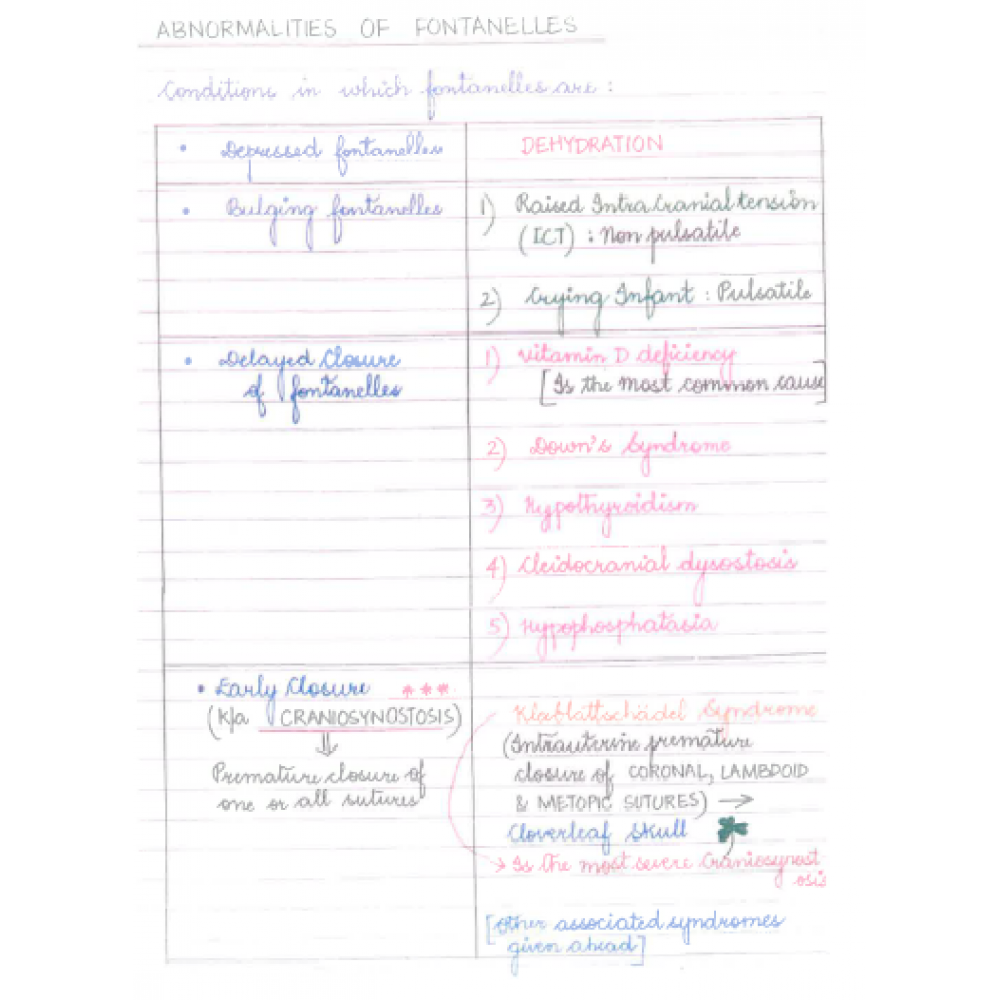 ABNORMALITIES OF FONTANELLES
Conditions in which fontanelles are :
• Depressed fontanelles
DEHYDRATION
• Bulging fontanelles
1) Raised Intra Cranial tension
(ICT) : Non pulsatile
2) Crying Infant : Pulsatile
• Delayed Closure
of fontanelles
1) Vitamin D deficiency
[Is the most common cause]
2) Down's Syndrome
3) Hypothyroidism
4) Cleidocranial dysostosis
5) Hypophosphatasia
• Early Closure ***
(K/a CRANIOSYNOSTOSIS)
⇓
Premature closure of
one or all sutures
Kleeblattschädel Syndrome
(Intrauterine premature
closure of CORONAL, LAMBDOID
& METOPIC SUTURES) →
Cloverleaf Skull
→ Is the most severe Craniosynost
osis
[Other associated syndromes
given ahead]